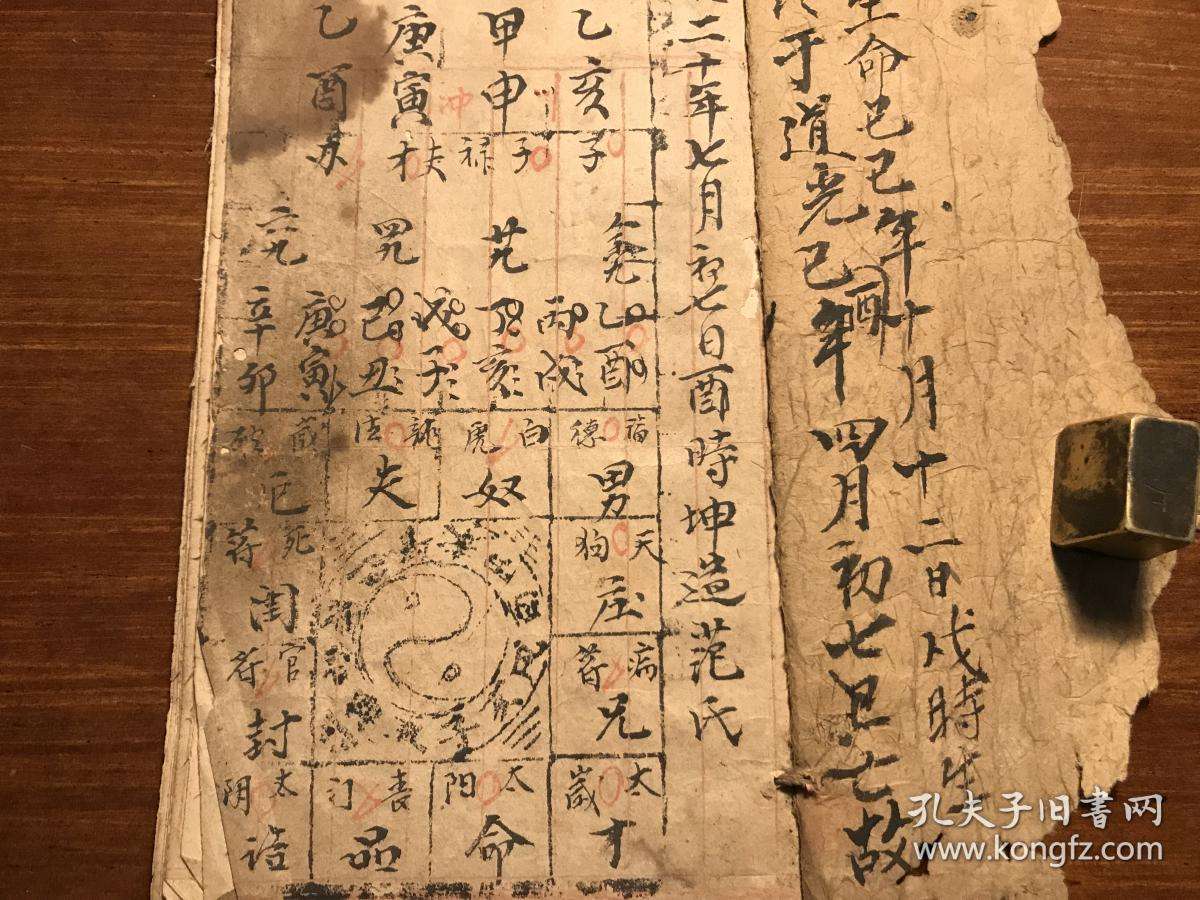 生命己巳年十月十二日戌時生
于道光己酉年四月初七日亡故
二十年七月初七日酉時坤造范氏
乙亥
甲申
庚寅
乙酉
冲
子
子 禄
夫 才
乙酉
丙戌
丁亥
戊子
己丑
庚寅
辛卯
福德
白虎
龍
歲
男
奴
夫
天狗
死符
庄
闰
病符
官符
兄
封
太歲
太阳
喜门
太阴
才
命
品
孔夫子旧书网
www.kongfz.com